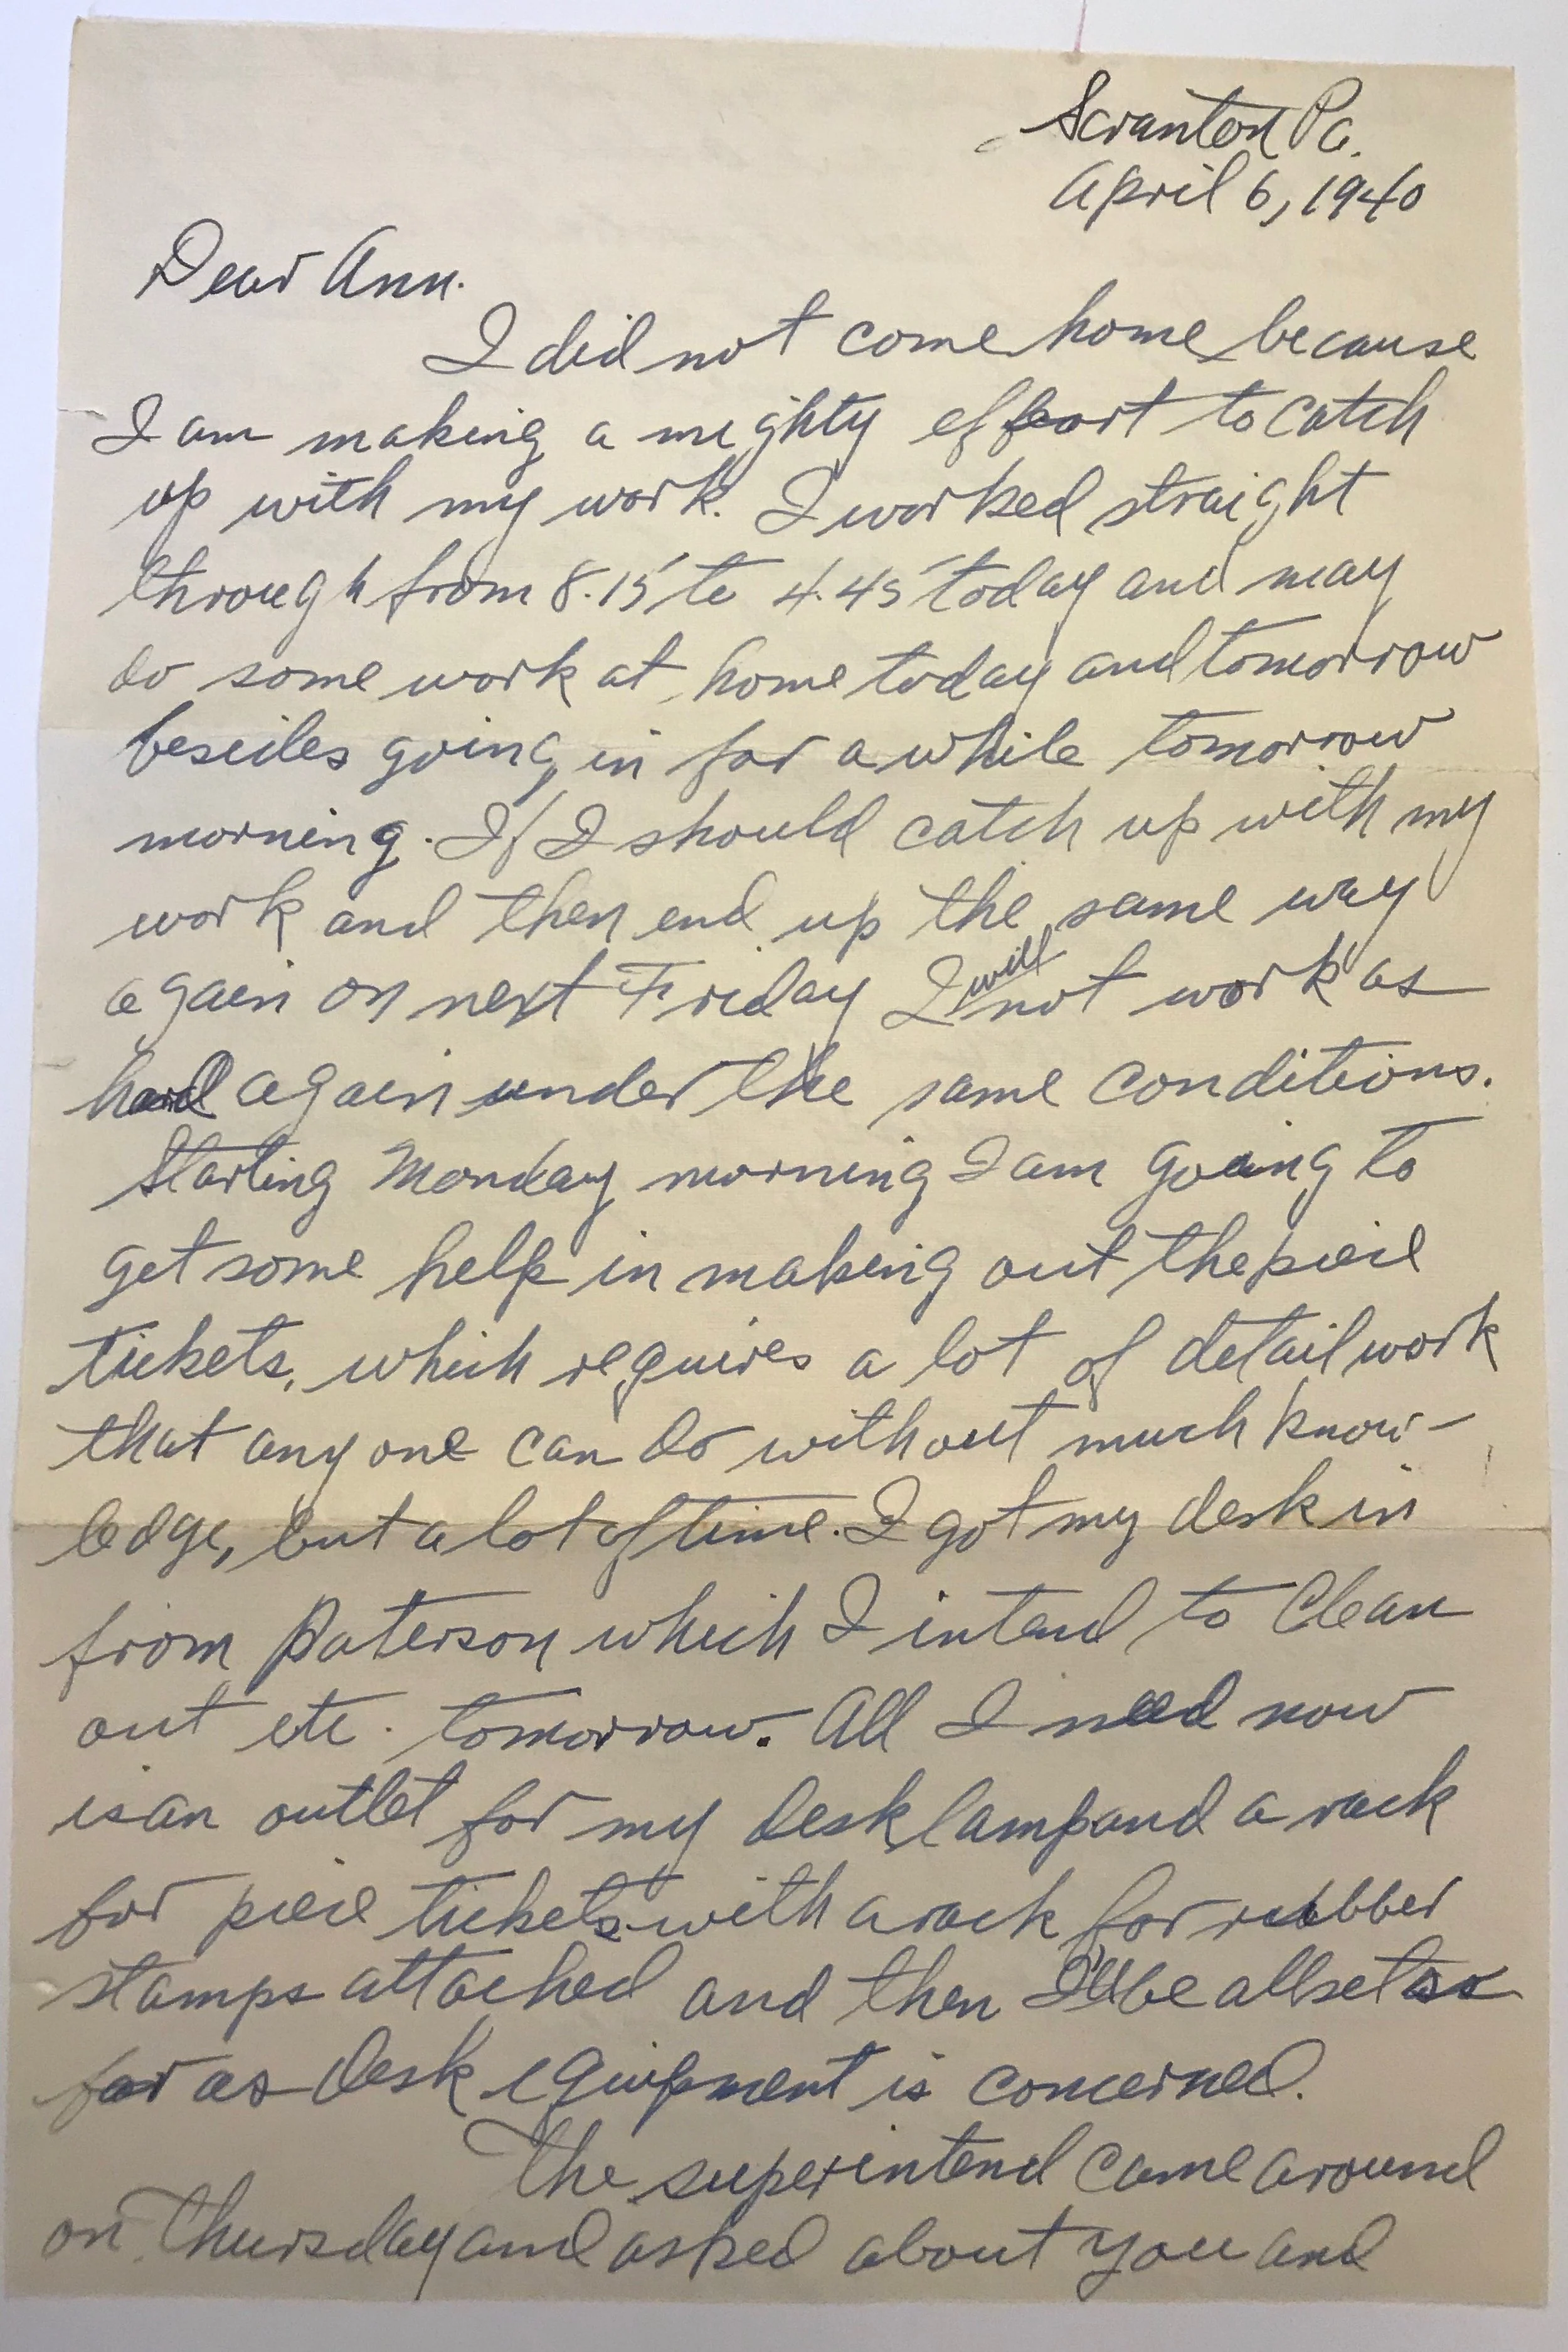 Scranton Pa.
April 6, 1940
Dear Ann.
I did not come home because
I am making a mighty effort to catch
up with my work. I worked straight
through from 8.15 to 4.45 today and may
do some work at home today and tomorrow
besides going in for a while tomorrow
morning. If I should catch up with my
work and then end up the same way
again on next Friday I will not work as
hard again under the same conditions.
Starting Monday morning I am going to
get some help in making out the piece
tickets, which requires a lot of detail work
that any one can do without much know-
ledge, but a lot of time. I got my desk in
from Paterson which I intend to clean
out etc. tomorrow. All I need now
is an outlet for my desk lamp and a rack
for piece tickets with a rack for rubber
stamps attached and then I'll be all set as
far as desk equipment is concerned.
The superintend came around
on Thursday and asked about you and